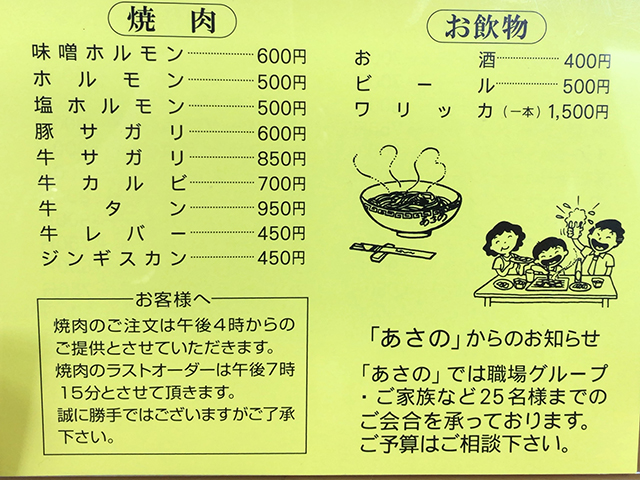 焼肉
味噌ホルモン 600円
ホルモン 500円
塩ホルモン 500円
豚サガリ 600円
牛サガリ 850円
牛カルビ 700円
牛タン 950円
牛レバー 450円
ジンギスカン 450円
お客様へ
焼肉のご注文は午後4時からの
ご提供とさせていただきます。
焼肉のラストオーダーは午後7時
15分とさせて頂きます。
誠に勝手ではございますがご了承
下さい。
お飲物
お酒 400円
ビール 500円
ワリッカ(一本) 1,500円
あさの
「あさの」からのお知らせ
「あさの」では職場グループ
・ご家族など25名様までの
ご会合を承っております。
ご予算はご相談下さい。